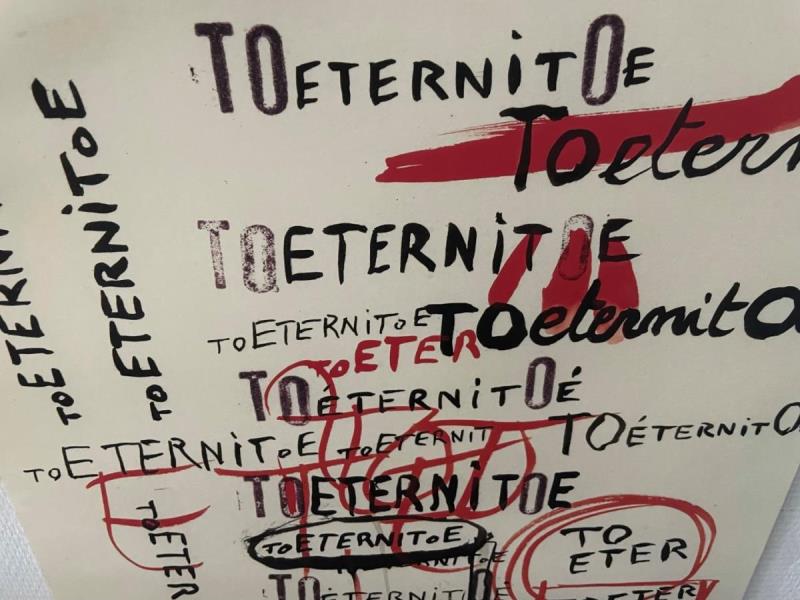 TOETERNiTOE
Toeter
TOETERNiTOE
TOETERNiTOE
TOeternitO
TOETER
TOÉTERNiTOÉ
TOETERNiTOE
TOETERNIT
TOÉTERNiTO
TOETERNiTOE
TOETERNiTOE
TO
ETER
TOETERNiTOE
TOETERNiTOE
TOETER